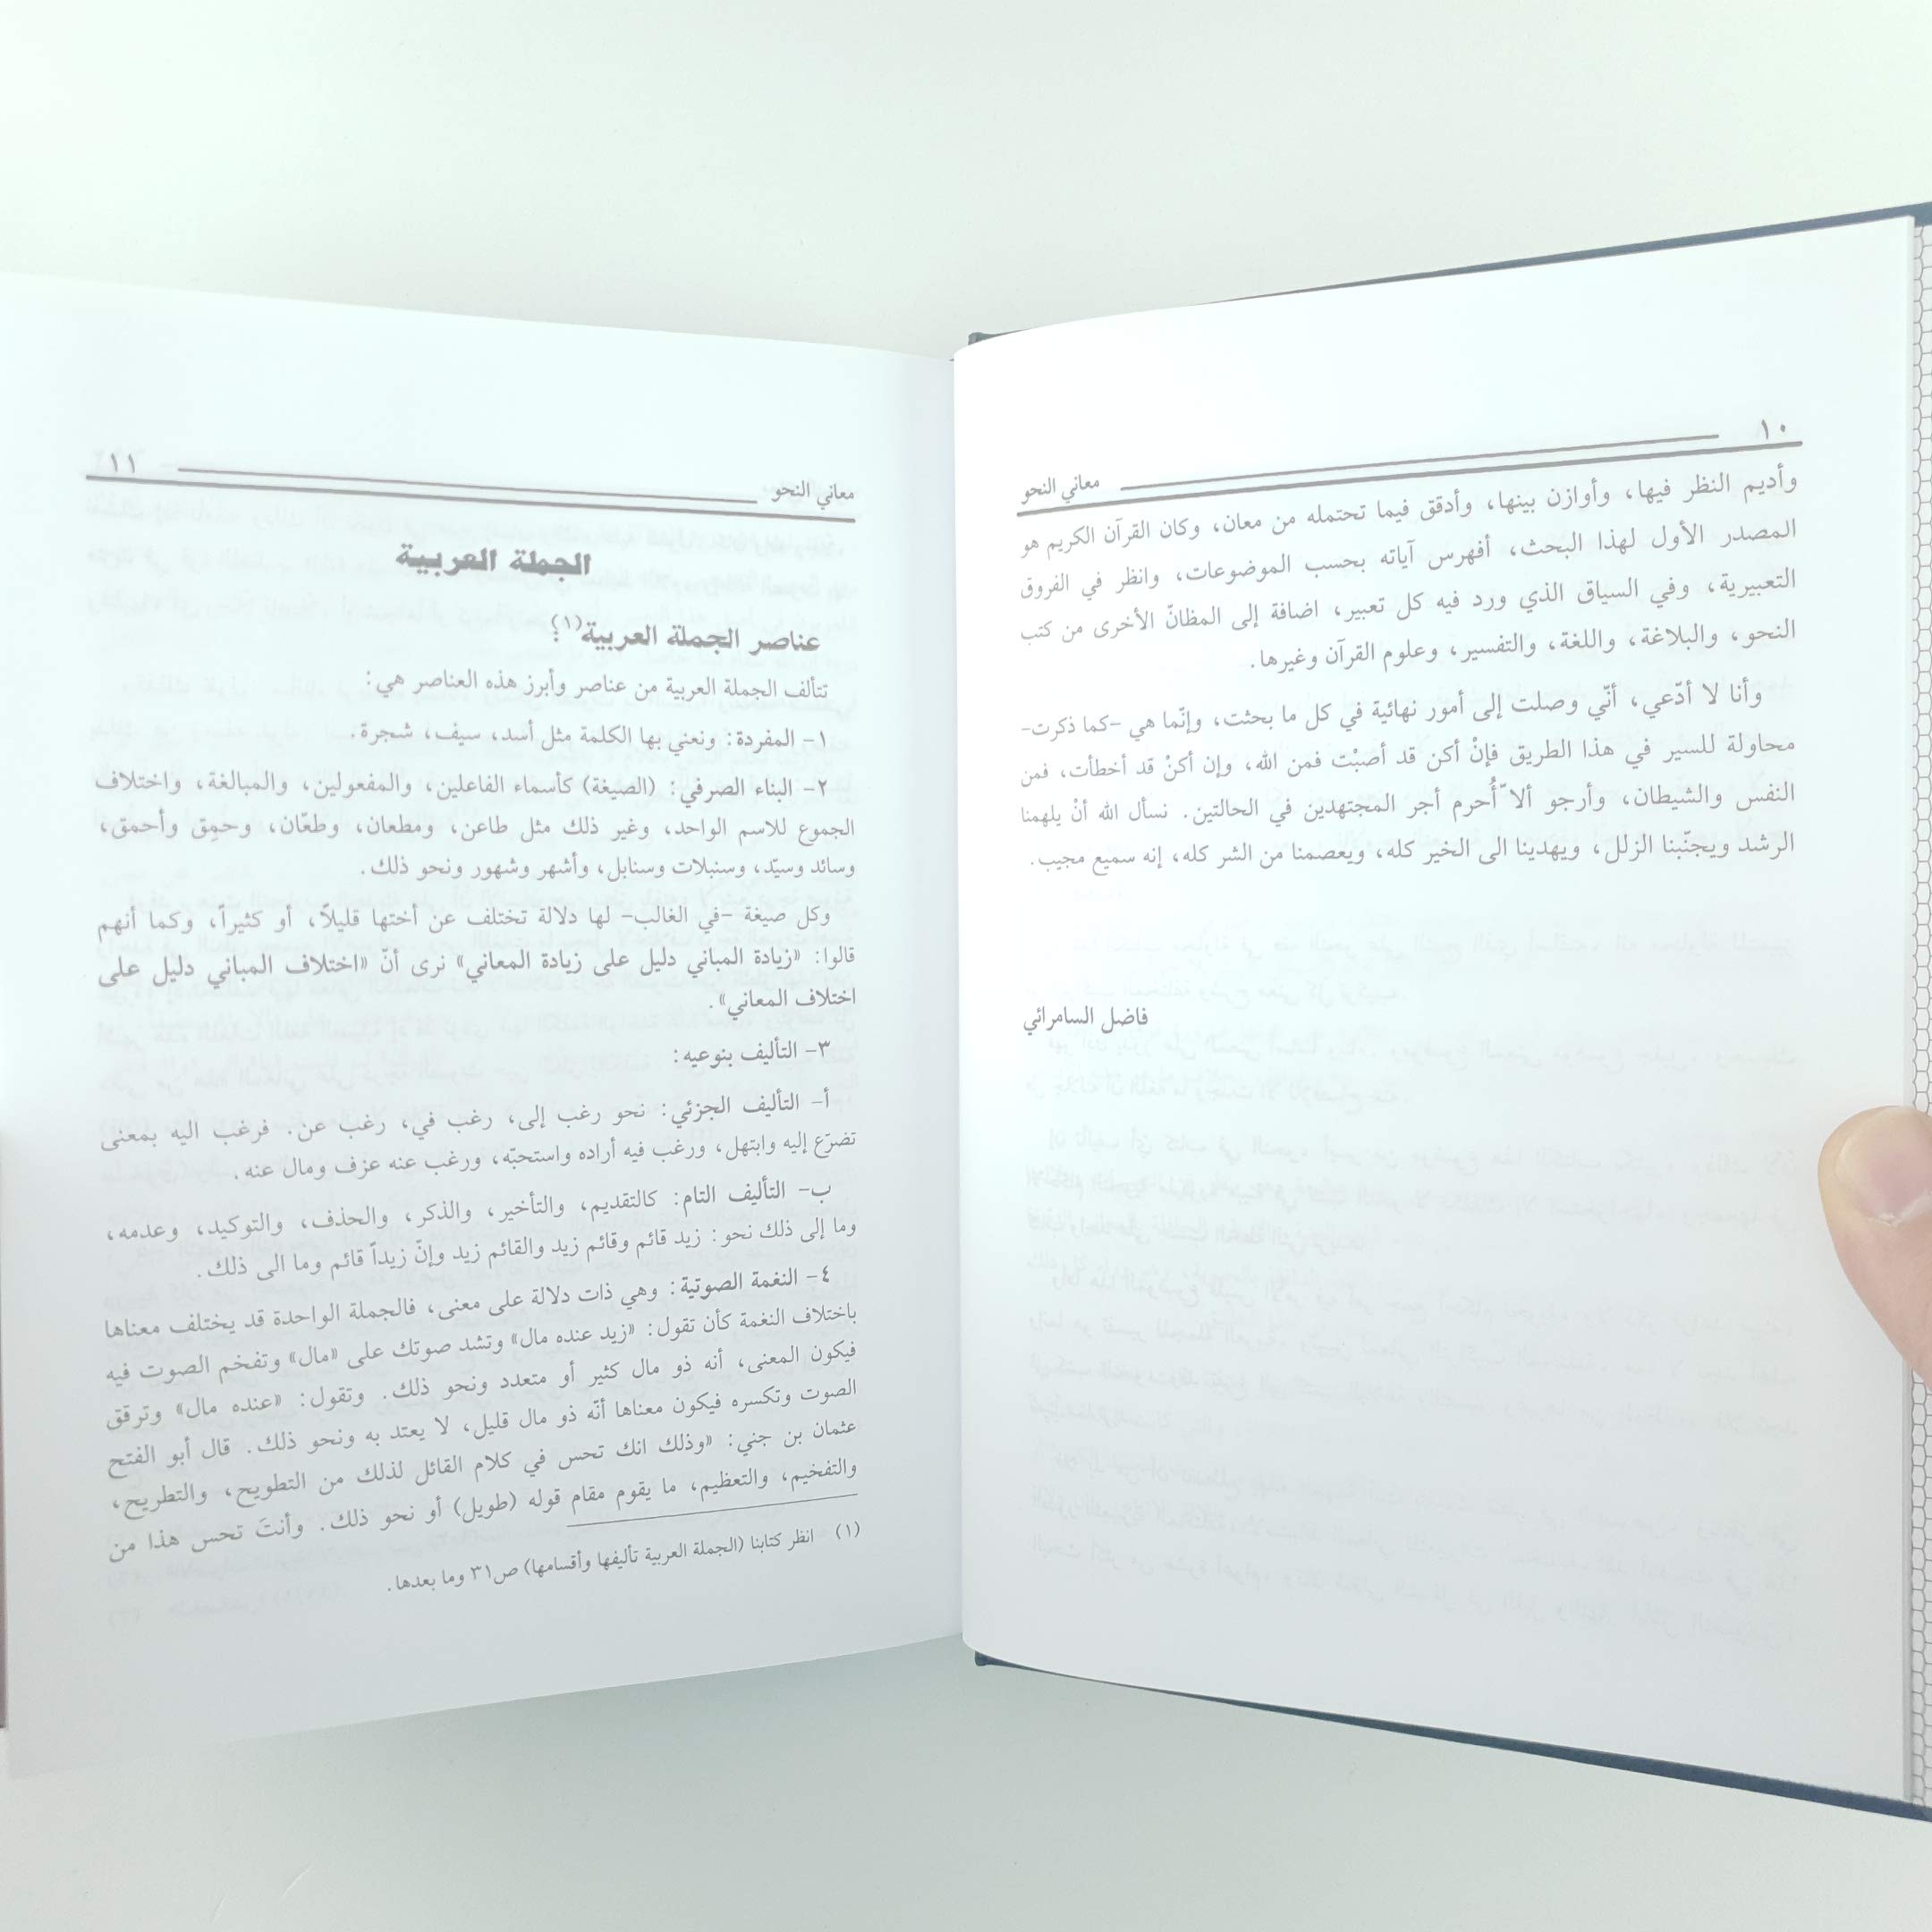 ١٠
معاني النحو
وأديم النظر فيها، وأوازن بينها، وأدقق فيما تحتمله من معان، وكان القرآن الكريم هو
المصدر الأول لهذا البحث، أفهرس آياته بحسب الموضوعات، وانظر في الفروق
التعبيرية، وفي السياق الذي ورد فيه كل تعبير، اضافة إلى المظانّ الأخرى من كتب
النحو، والبلاغة، واللغة، والتفسير، وعلوم القرآن وغيرها.
وأنا لا أدّعي، أنّي وصلت إلى أمور نهائية في كل ما بحثت، وإنّما هي -كما ذكرت-
محاولة للسير في هذا الطريق فإنْ أكن قد أصبْت فمن الله، وإن أكنْ قد أخطأت، فمن
النفس والشيطان، وأرجو ألاّ أُحرم أجر المجتهدين في الحالتين. نسأل الله أنْ يلهمنا
الرشد ويجنّبنا الزلل، ويهدينا الى الخير كله، ويعصمنا من الشر كله، إنه سميع مجيب.
فاضل السامرائي
معاني النحو
١١
الجملة العربية
عناصر الجملة العربية(١):
تتألف الجملة العربية من عناصر وأبرز هذه العناصر هي:
١- المفردة: ونعني بها الكلمة مثل أسد، سيف، شجرة.
٢- البناء الصرفي: (الصيغة) كأسماء الفاعلين، والمفعولين، والمبالغة، واختلاف
الجموع للاسم الواحد، وغير ذلك مثل طاعن، ومطعان، وطعّان، وحمِق وأحمق،
وسائد وسيّد، وسنبلات وسنابل، وأشهر وشهور ونحو ذلك.
وكل صيغة -في الغالب- لها دلالة تختلف عن أختها قليلاً، أو كثيراً، وكما أنهم
قالوا: «زيادة المباني دليل على زيادة المعاني» نرى أنّ «اختلاف المباني دليل على
اختلاف المعاني».
٣- التأليف بنوعيه:
أ- التأليف الجزئي: نحو رغب إلى، رغب في، رغب عن. فرغب اليه بمعنى
تضرّع إليه وابتهل، ورغب فيه أراده واستحبّه، ورغب عنه عزف ومال عنه.
ب- التأليف التام: كالتقديم، والتأخير، والذكر، والحذف، والتوكيد، وعدمه،
وما إلى ذلك نحو: زيد قائم وقائم زيد والقائم زيد وإنّ زيداً قائم وما الى ذلك.
٤- النغمة الصوتية: وهي ذات دلالة على معنى، فالجملة الواحدة قد يختلف معناها
باختلاف النغمة كأن تقول: «زيد عنده مال» وتشد صوتك على «مال» وتفخم الصوت فيه
فيكون المعنى، أنه ذو مال كثير أو متعدد ونحو ذلك. وتقول: «عنده مال» وترقق
الصوت وتكسره فيكون معناها أنّه ذو مال قليل، لا يعتد به ونحو ذلك. قال أبو الفتح
عثمان بن جني: «وذلك انك تحس في كلام القائل لذلك من التطويح، والتطريح،
والتفخيم، والتعظيم، ما يقوم مقام قوله (طويل) أو نحو ذلك. وأنتَ تحس هذا من
(١) انظر كتابنا (الجملة العربية تأليفها وأقسامها) ص٣١ وما بعدها.